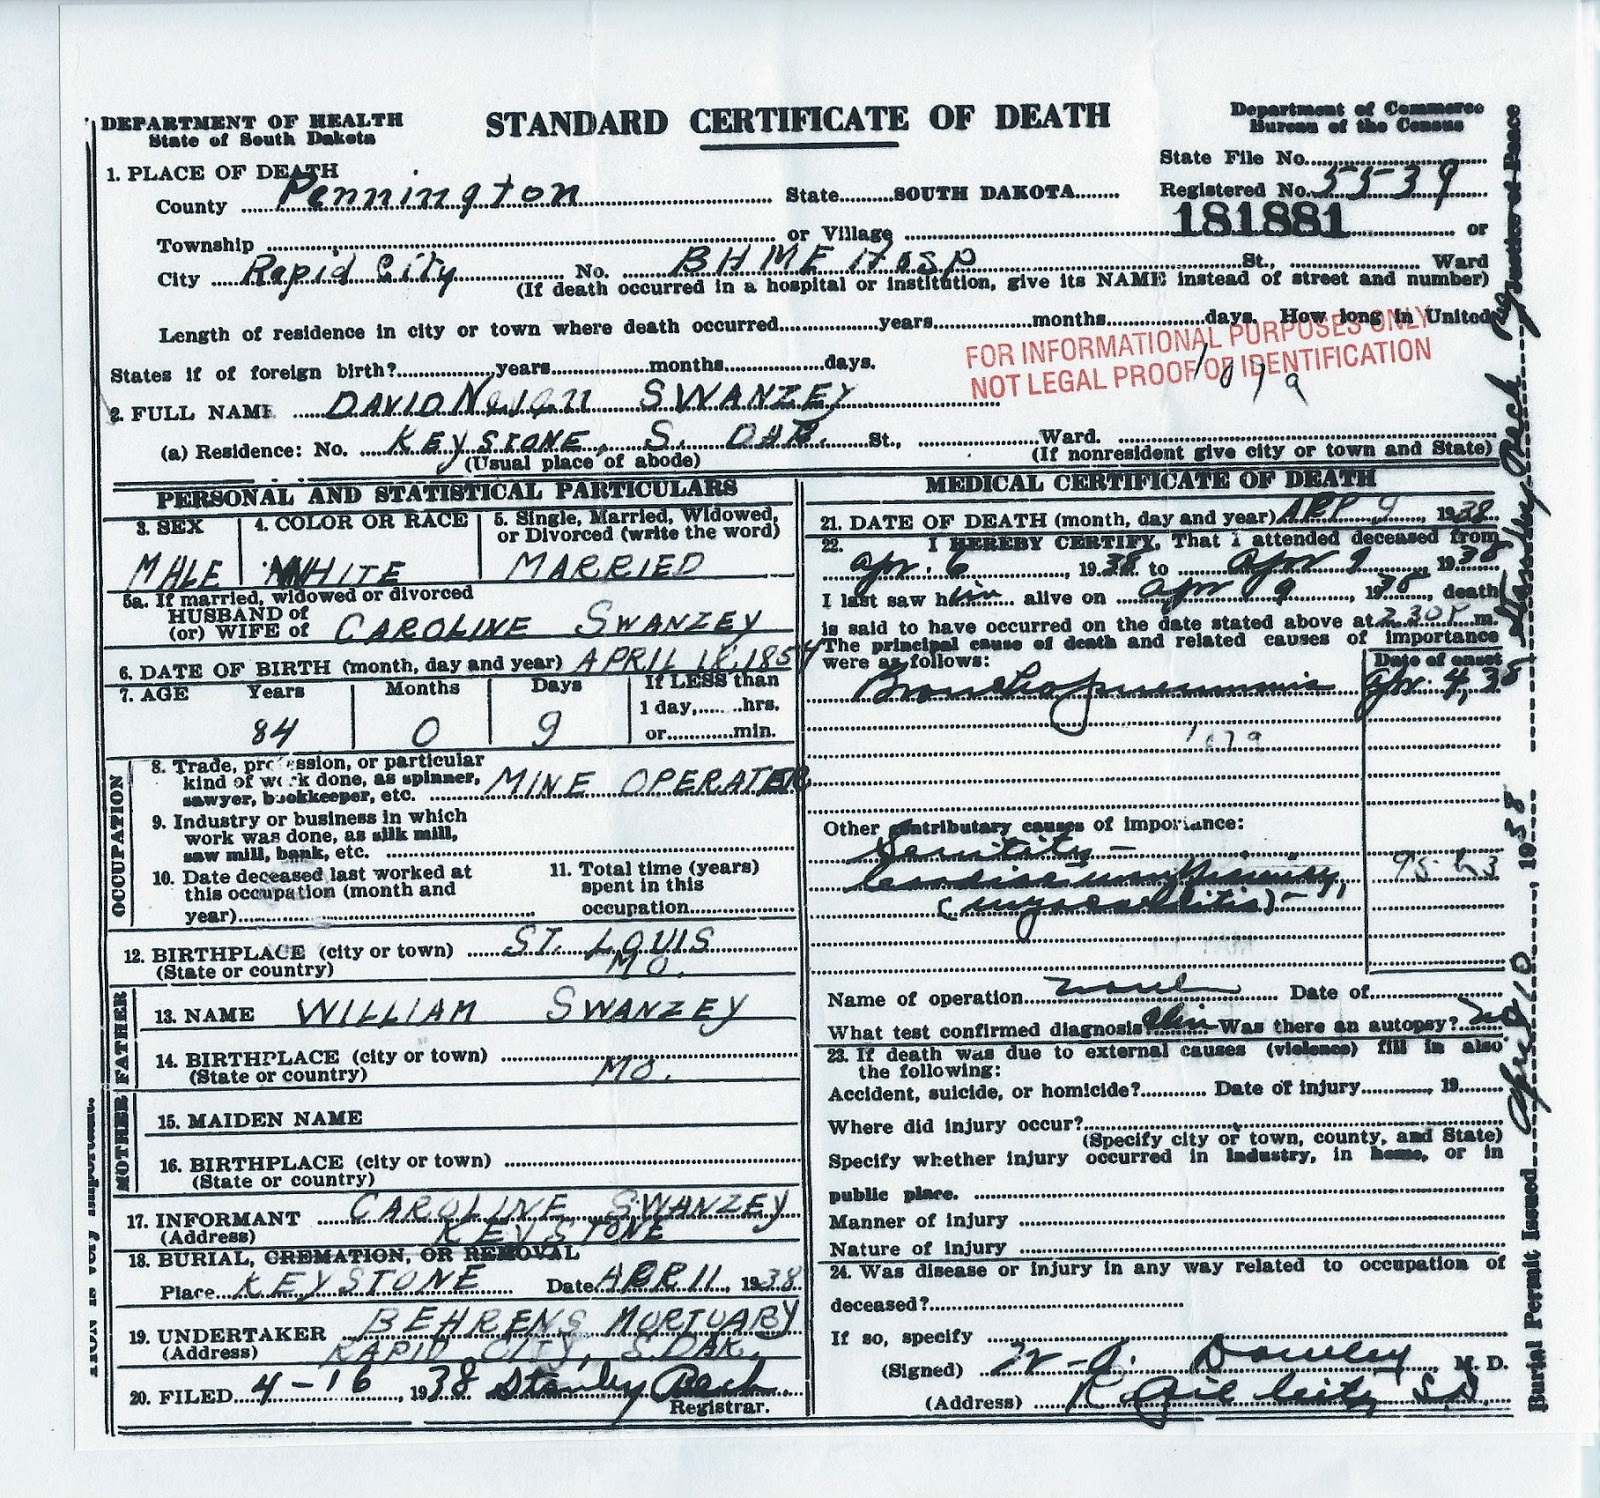 DEPARTMENT OF HEALTH
State of South Dakota
STANDARD CERTIFICATE OF DEATH
Department of Commerce
Bureau of the Census
State File No.
1. PLACE OF DEATH
County Pennington State SOUTH DAKOTA Registered No. 5539
181881
Township or Village or
City Rapid City No. BHME Hosp St., Ward
(If death occurred in a hospital or institution, give its NAME instead of street and number)
Length of residence in city or town where death occurred years months days. How long in United
States if of foreign birth? years months days.
FOR INFORMATIONAL PURPOSES ONLY
NOT LEGAL PROOF OF IDENTIFICATION
107a
2. FULL NAME DAVID SWANZEY
(a) Residence: No. KEYSTONE, S. DAK. St., Ward.
(Usual place of abode) (If nonresident give city or town and State)
PERSONAL AND STATISTICAL PARTICULARS
3. SEX 4. COLOR OR RACE 5. Single, Married, Widowed, or Divorced (write the word)
MALE WHITE MARRIED
5a. If married, widowed or divorced
HUSBAND of
(or) WIFE of CAROLINE SWANZEY
6. DATE OF BIRTH (month, day and year) APRIL 1854
7. AGE Years Months Days If LESS than
1 day, hrs.
84 0 9 or min.
OCCUPATION
8. Trade, profession, or particular
kind of work done, as spinner,
sawyer, bookkeeper, etc. MINE OPERATER
9. Industry or business in which
work was done, as silk mill,
saw mill, bank, etc.
10. Date deceased last worked at
this occupation (month and
year)
11. Total time (years)
spent in this
occupation
12. BIRTHPLACE (city or town) ST. LOUIS
(State or country) MO.
FATHER
13. NAME WILLIAM SWANZEY
14. BIRTHPLACE (city or town)
(State or country) MO.
MOTHER
15. MAIDEN NAME
16. BIRTHPLACE (city or town)
(State or country)
17. INFORMANT CAROLINE SWANZEY
(Address) KEYSTONE
18. BURIAL, CREMATION, OR REMOVAL
Place KEYSTONE Date APR 11, 1938
19. UNDERTAKER BEHRENS MORTUARY
(Address) RAPID CITY, S. DAK.
20. FILED 4-16, 1938 Stanley Pech
Registrar.
MEDICAL CERTIFICATE OF DEATH
21. DATE OF DEATH (month, day and year) APR 9, 1938
22. I HEREBY CERTIFY, That I attended deceased from
Apr. 6, 1938 to Apr 9, 1938
I last saw him alive on Apr 9, 1938, death
is said to have occurred on the date stated above at 2:30 P. m.
The principal cause of death and related causes of importance
were as follows: Date of onset
Bronchopneumonia Apr 4, 38
107a
Other contributary causes of importance:
Senility -
Cardiac insufficiency,
(myocarditis) -
Name of operation none Date of
What test confirmed diagnosis Clin Was there an autopsy? no
23. If death was due to external causes (violence) fill in also
the following:
Accident, suicide, or homicide? Date of injury 19
Where did injury occur?
(Specify city or town, county, and State)
Specify whether injury occurred in industry, in home, or in
public place.
Manner of injury
Nature of injury
24. Was disease or injury in any way related to occupation of
deceased?
If so, specify
(Signed) Dawley, M. D.
(Address) Rapid City S.D.
Burial Permit Issued April 10, 1938 Stanley Pech